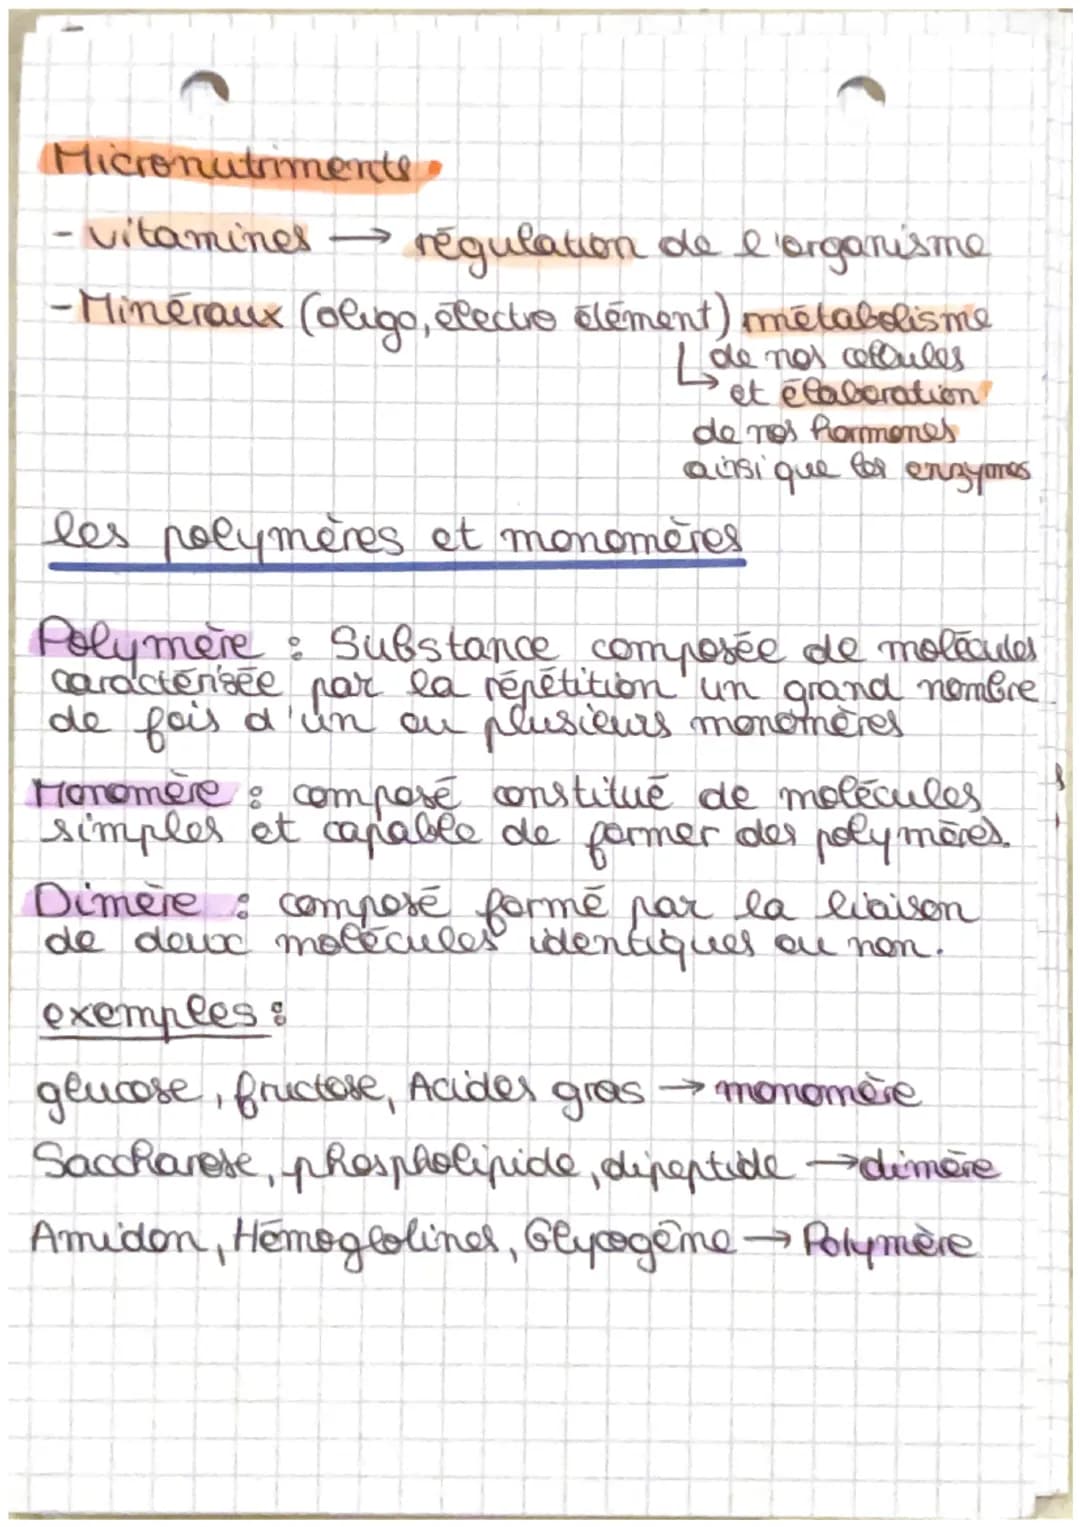 Micronutriments.
- vitamines → régulation de l'organisme
- Minéraux (oligo, électro élément) métabolisme
↳ de nos cellules
et élaboration
de nos hormones
ainsi que les enzymes
les polymères et monomères
Polymère : Substance composée de molécules
caractérisée par la répétition un grand nombre
de fois d'un ou plusieurs monomères
Monomère : composé constitué de molécules
simples et capable de former des polymères.
Dimère : composé formé par la liaison
de deux molécules identiques ou non.
exemples :
glucose, fructose, Acides gras → monomère
Saccharose, phospholipide, dipeptide → dimère
Amidon, Hémoglolines, Glycogène → Polymère